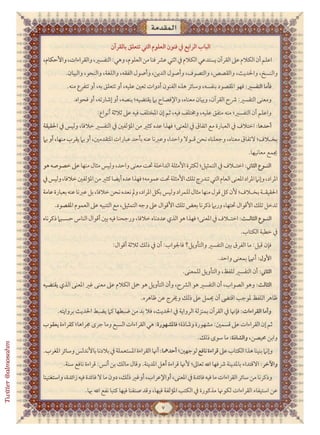 المقدمة
الباب الرابع في فنون العلوم التي تتعلق بالقرآن
اعلم أن الكلام على القرآن يستدعي الكلام في اثني عشر فنا من العلوم، وهي: التفسير، والقراءات، والأحكام،
والنسخ، والحديث، والقصص، والتصوف، وأصول الدين، وأصول الفقه، واللغة، والنحو، والبيان.
فأما التفسير: فهو المقصود بنفسه، وسائر هذه الفنون أدوات تعين عليه، أو تتعلق به، أو تتفرع منه.
ومعنى التفسير: شرح القرآن، وبيان معناه، والإفصاح بما يقتضيه؛ بنصه، أو إشارته، أو فحواه.
واعلم أن التفسير؛ منه متفق عليه، ومختلف فيه، ثم إن المختلف فيه على ثلاثة أنواع:
أحدها: اختلاف في العبارة مع اتفاق في المعنى؛ فهذا عده كثير من المؤلفين في التفسير خلافا، وليس في الحقيقة
بخلاف؛ لاتفاق معناه، وجعلناه نحن قولا واحدا، وعبرنا عنه بأحد عبارات المتقدمين، أو بما يقرب منها، أو بما
يجمع معانيها.
النوع الثاني: اختلاف في التمثيل؛ لكثرة الأمثلة الداخلة تحت معنى واحد، وليس مثال منها على خصوصه هو
المراد، وإنما المراد المعنى العام التي تندرج تلك الأمثلة تحت عمومه؛ فهذا عده أيضا كثير من المؤلفين خلافا، وليس في
الحقيقة بخلاف؛ لأن كل قول منها مثال للمراد وليس بكل المراد، ولم نعده نحن خلافا، بل عبرنا عنه بعبارة عامة
تدخل تلك الأقوال تحتها، وربما ذكرنا بعض تلك الأقوال على وجه التمثيل، مع التنبيه على العموم المقصود.
النوع الثالث: اختلاف في المعنى؛ فهذا هو الذي عددناه خلافا، ورجحنا فيه بين أقوال الناس حسبما ذكرناه
في خطبة الكتاب.
فإن قيل: ما الفرق بين التفسير والتأويل؟ فالجواب: أن في ذلك ثلاثة أقوال:
الأول: أنهما بمعنى واحد.
الثاني: أن التفسير للفظ، والتأويل للمعنى.
الثالث: وهو الصواب، أن التفسير هو الشرح، وأن التأويل هو حمل الكلام على معنى غير المعنى الذي يقتضيه
ظاهر اللفظ لموجب اقتضى أن يحمل على ذلك ويخرج عن ظاهره.
وأما القراءات: فإنها في القرآن بمنزلة الرواية في الحديث، فلا بد من ضبطها كما يضبط الحديث بروايته.
ثم إن القراءات على قسمين: مشهورة وشاذة؛ فالمشهورة: هي القراءات السبع وما جرى مجراها؛ كقراءة يعقوب
وابن محيصن، والشاذة: ما سوى ذلك.
وإنما بنينا هذا الكتاب على قراءة نافع لوجهين: أحدهما: أنها القراءة المستعملة في بلادنا بالأندلس وسائر المغرب.
والآخر: الاقتداء بالمدينة شرفها الله تعالى؛ لأنها قراءة أهل المدينة. وقال مالك بن أنس: قراءة نافع سنة.
وذكرنا من سائر القراءات ما فيه فائدة في المعنى، أو الإعراب، أو غير ذلك، دون ما لا فائدة فيه زائدة، واستغنينا
عن استيفاء القراءات لكونها مذكورة في الكتب المؤلفة فيها، وقد صنفنا فيها كتبا نفع الله بها.
٧